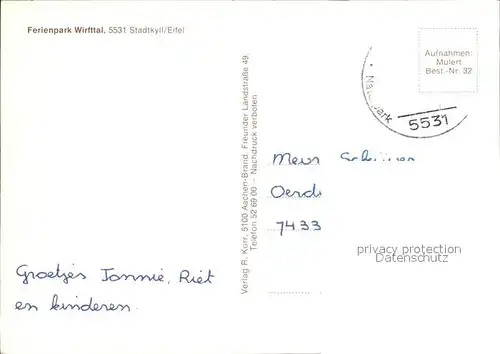 Ferienpark Wirfttal, 5531 Stadtkyll/Eifel
Aufnahmen:
Mulert
Best.-Nr. 32
5531
Verlag R. Korr, 5100 Aachen-Brand, Freunder Landstraße 49,
Telefon 52 69 00 – Nachdruck verboten
7433
privacy protection
Datenschutz
Groetjes Jonnie, Riet
en kinderen